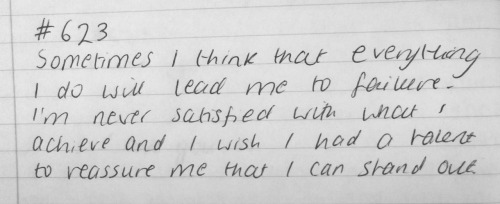 #623
Sometimes I think that everything
I do will lead me to failure.
I'm never satisfied with what I
achieve and I wish I had a talent
to reassure me that I can stand out